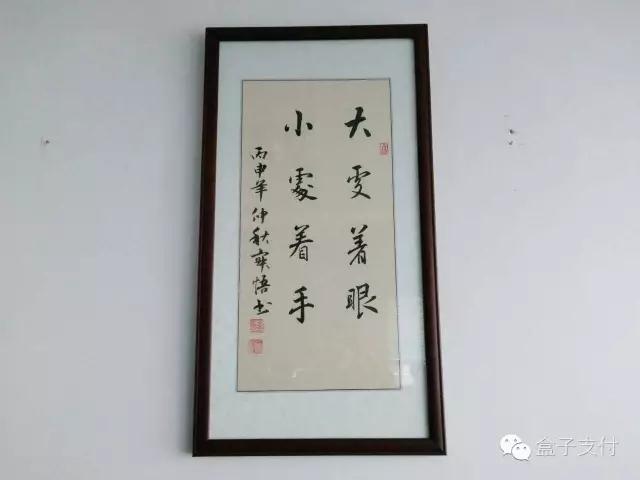 大处着眼
小處着手
丙申年仲秋奕悟书
盒子支付